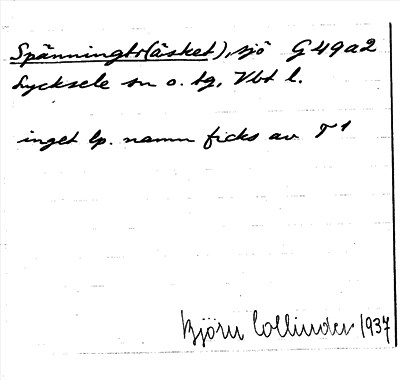 Spänningtr(äsket), sjö G 49 a 2
Lycksele sn o. tg, Vbt l.
inget lp. namn ficks av T 1
Björn Collinder 1937